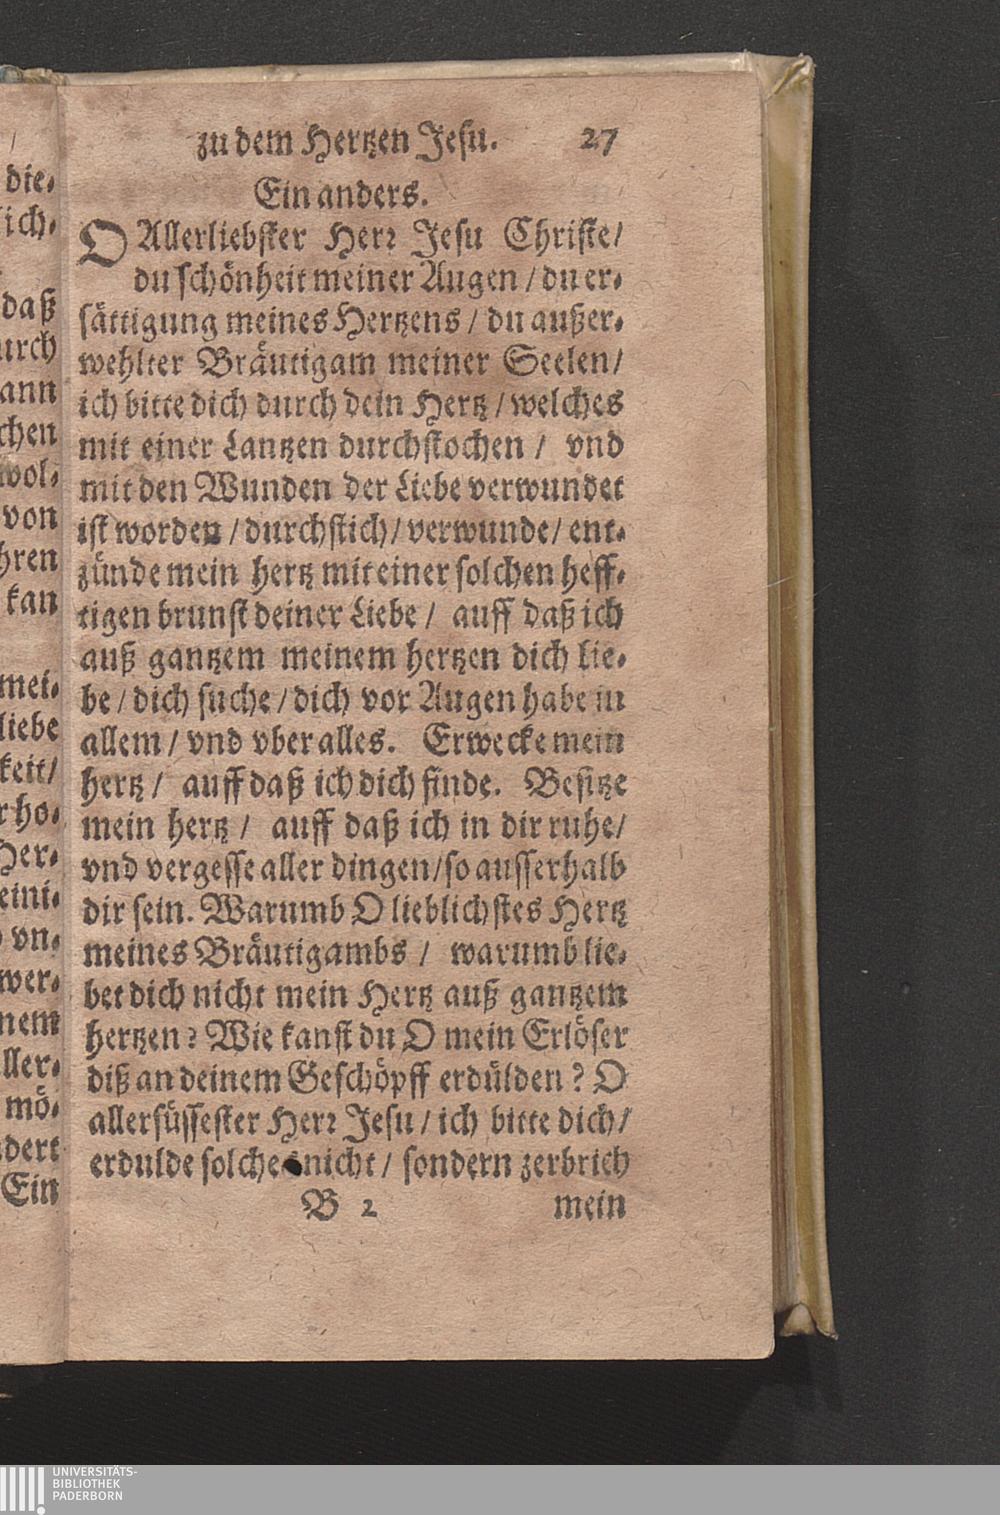 zu dem Hertzen Jesu. 27
Ein anders.
O Allerliebster Herr Jesu Christe/
du schönheit meiner Augen / du er-
sättigung meines Hertzens / du außer-
wehlter Bräutigam meiner Seelen/
ich bitte dich durch dein Hertz / welches
mit einer Lantzen durchstochen / vnd
mit den Wunden der Liebe verwundet
ist worden / durchstich / verwunde / ent-
zünde mein hertz mit einer solchen heff-
tigen brunst deiner Liebe / auff daß ich
auß gantzem meinem hertzen dich lie-
be / dich suche / dich vor Augen habe in
allem / vnd vber alles. Erwecke mein
hertz / auff daß ich dich finde. Besitze
mein hertz / auff daß ich in dir ruhe/
vnd vergesse aller dingen/so ausserhalb
dir sein. Warumb O lieblichstes Hertz
meines Bräutigambs / warumb lie-
bet dich nicht mein Hertz auß gantzem
hertzen? Wie kanst du O mein Erlöser
diß an deinem Geschöpff erdülden? O
allersüssester Herr Jesu / ich bitte dich/
erdulde solches nicht / sondern zerbrich
B 2 mein
die-
lich-
daß
urch
ann
chen
wol-
von
hren
kan
mei-
liebe
keit/
rho-
Her-
eini-
vn-
wer-
nem
ller-
mö-
dert
Ein
UNIVERSITÄTS-
BIBLIOTHEK
PADERBORN